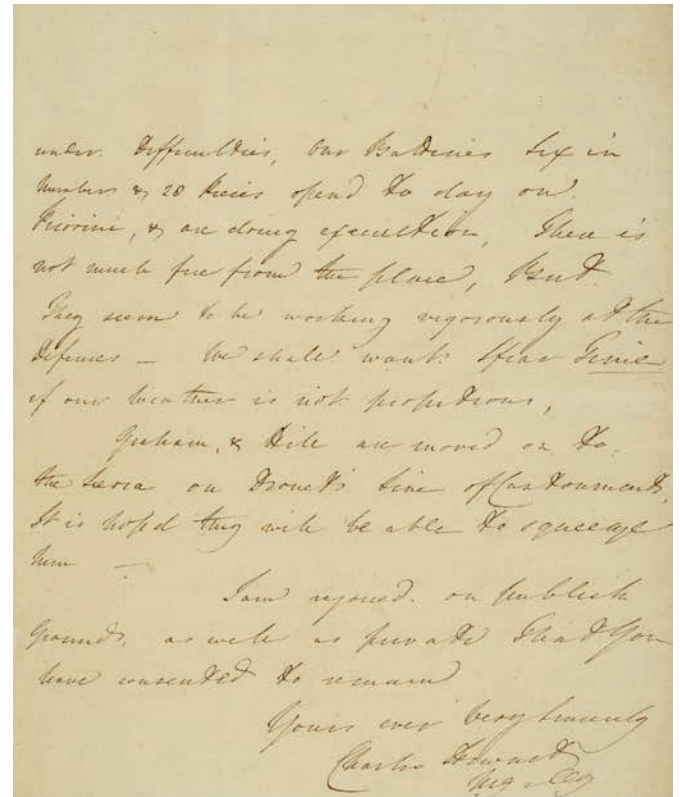 under Difficulties, our Batteries Six in
number & 28 Pieces opend to day on
Picorini, & are doing execution, There is
not much fire from the place, But
They seem to be working vigorously at the
Defences — We shall want I fear Time
if our weather is not propitious,
Graham, & Hill are moved on to
the Sierra on Drouet's line of Cantonments,
It is hoped they will be able to squeeze
him —
I am rejoiced on publick
Grounds as well as private That You
have consented to remain
Yours ever very Sincerely
Charles Stewart